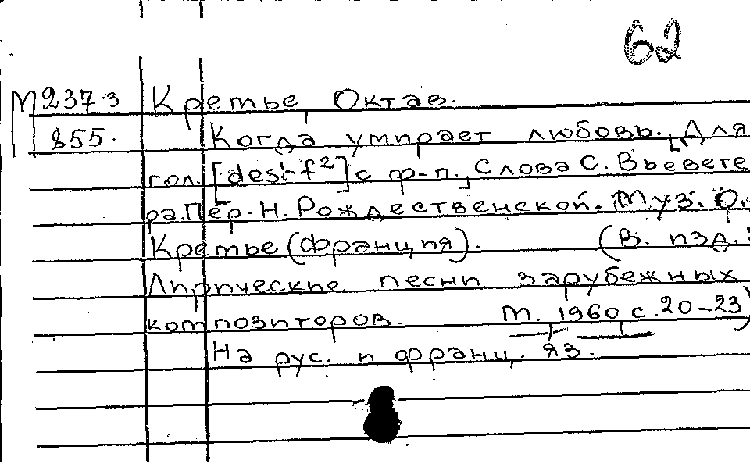 62
М2373 Кретье, Октав.
855. Когда умирает любовь. [Для
гол. [des¹-f²] с ф-п., Слова С. Вьевете
ра. Пер. Н. Рождественской. Муз. О.
Кретье (Франция). (В. изд.:
Лирические песни зарубежных
композиторов. М. 1960 с. 20-23)
На рус. и франц. яз.